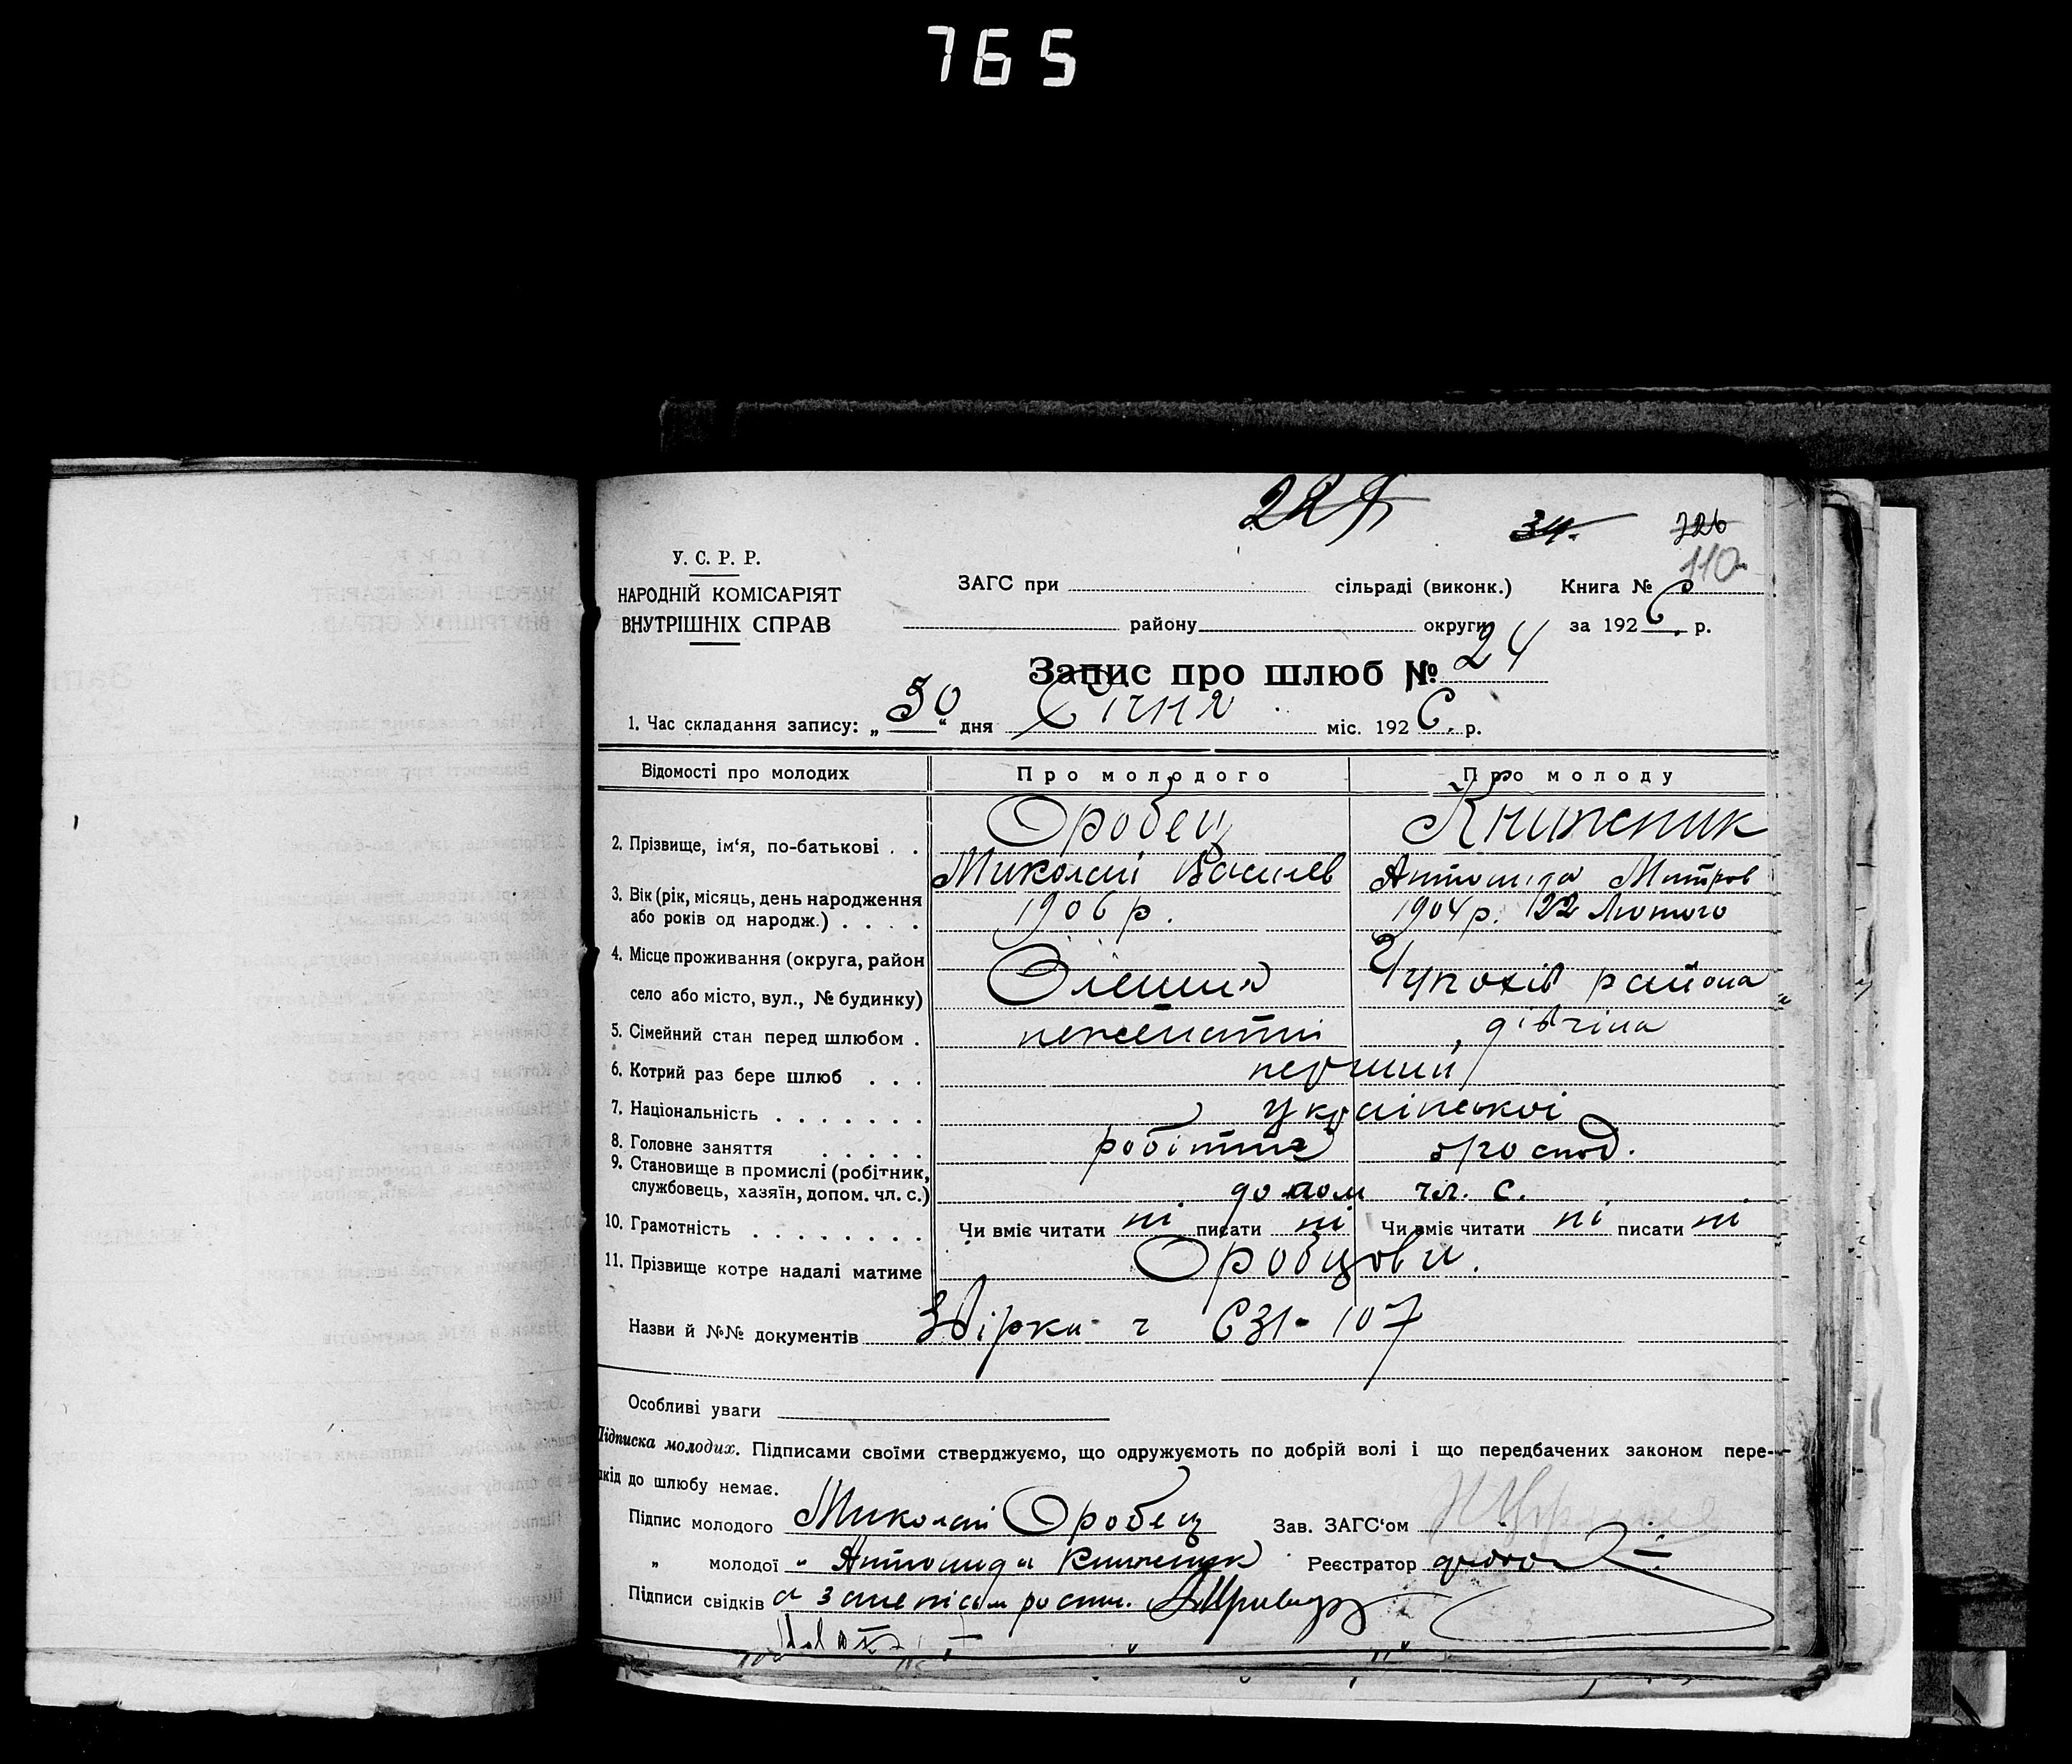 765
34.
726
110
У. С. Р. Р.
НАРОДНІЙ КОМІСАРІЯТ
ВНУТРІШНІХ СПРАВ
ЗАГС при сільраді (виконк.) Книга № 6
району округи за 1926 р.
Запис про шлюб № 24
1. Час складання запису: „30“ дня Січня міс. 1926. р.
Відомості про молодих Про молодого Про молоду
2. Прізвище, ім‘я, по-батькові . . Оробец Книжник
Миколай Василев Антонида Митров
3. Вік (рік, місяць, день народження або років од народж.) . . . . 1906 р. 1904 р. 22 Лютого
4. Місце проживання (округа, район село або місто, вул., № будинку) Олешня района
5. Сімейний стан перед шлюбом . нежонатий дівчина
6. Котрий раз бере шлюб . . . перший
7. Національність . . . . . . . української
8. Головне заняття . . . . .
9. Становище в промислі (робітник, службовець, хазяїн, допом. чл. с.) допом чл. с.
10. Грамотність . . . . . . . . Чи вміє читати ні писати ні Чи вміє читати ні писати ні
11. Прізвище котре надалі матиме Оробцови.
Назви й №№ документів 631-107
Особливі уваги
Підписка молодих. Підписами своїми стверджуємо, що одружуємоть по добрій волі і що передбачених законом пере-
шкід до шлюбу немає.
Підпис молодого Миколай Оробец Зав. ЗАГС‘ом
„ молодої „ Антонида Книжник Реєстратор
Підписи свідків